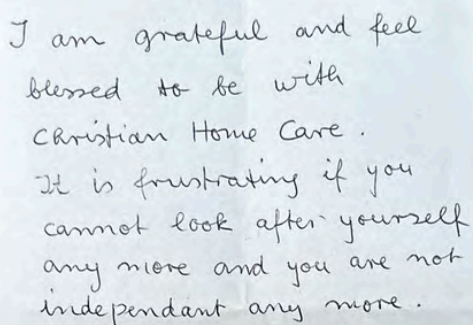 I am grateful and feel
blessed to be with
Christian Home Care.
It is frustrating if you
cannot look after yourself
any more and you are not
independant any more.